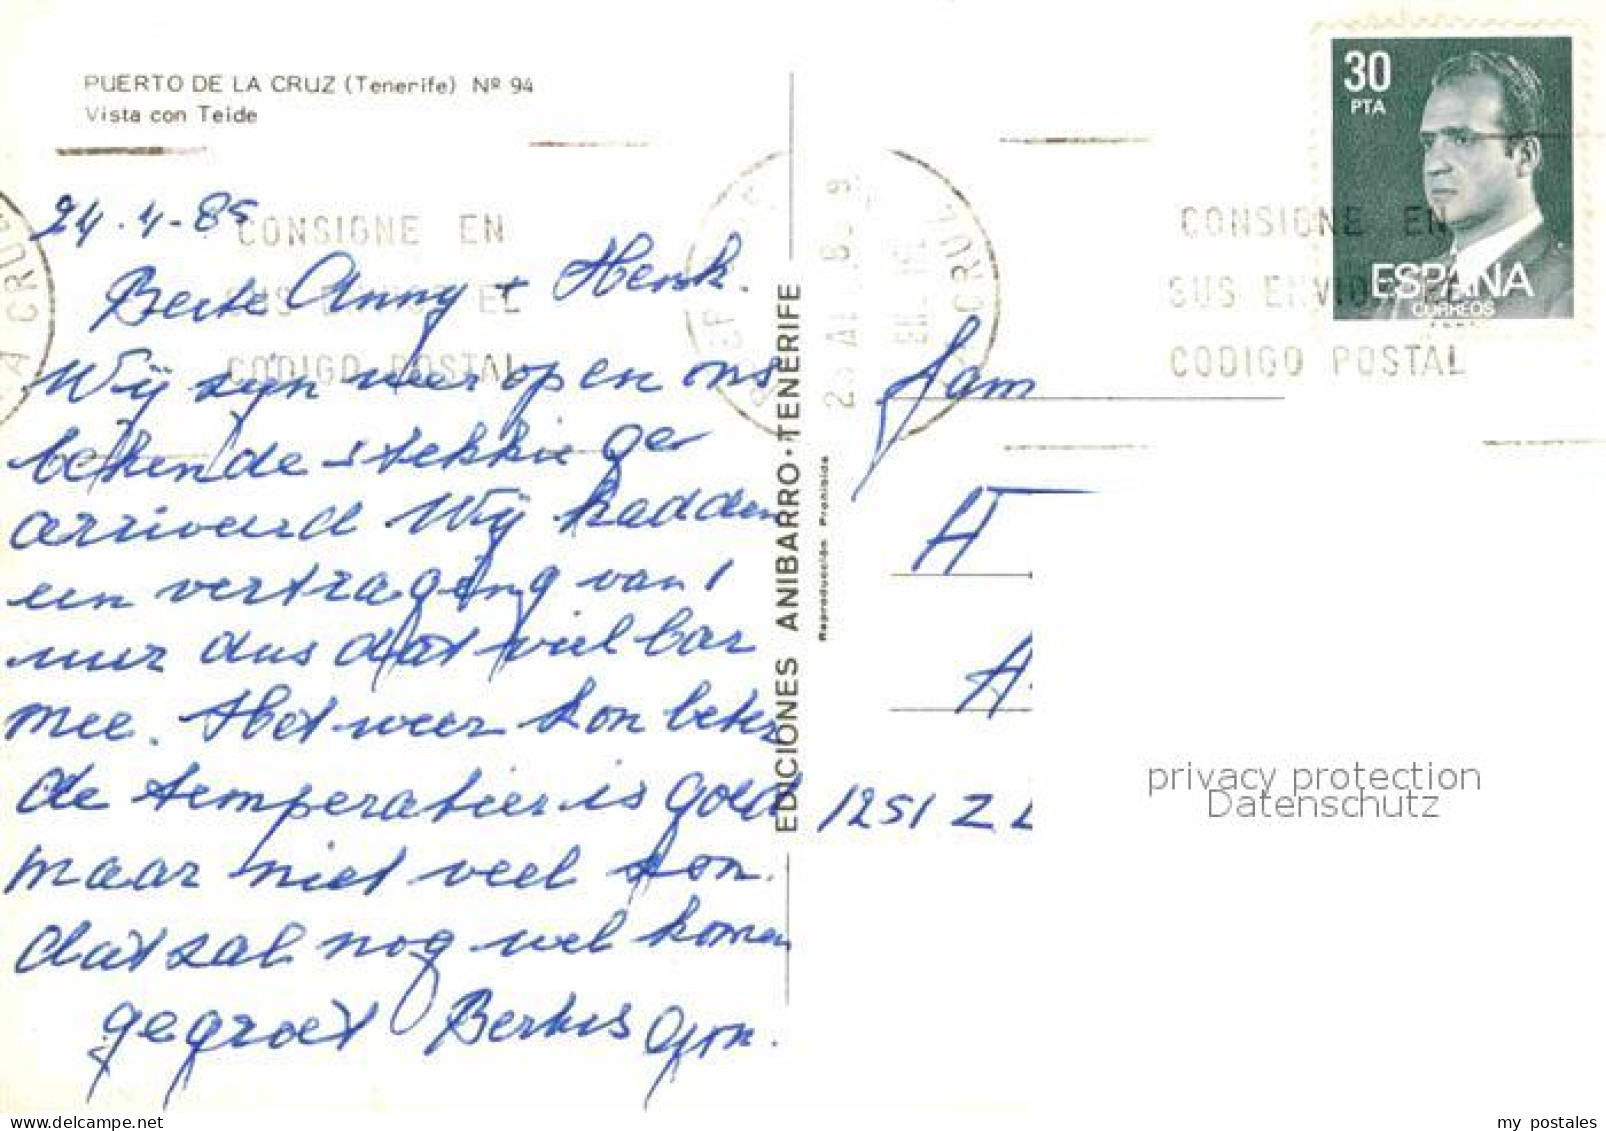 PUERTO DE LA CRUZ (Tenerife) Nº 94
Vista con Teide
24.4-85
Beste Anny + Henk.
Wij zijn weer op en ons
bekende stekkie ge
arriveerd Wij hadden
een vertraging van 1
uur dus dat viel bar
mee. Het weer kon beter
de temperatier is goed
maar niet veel zon.
dat zal nog wel komen
gegroet
EDICIONES ANIBARRO · TENERIFE
Reproducción Prohibida
CONSIGNE EN
SUS EL
CODIGO POSTAL
CONSIGNE EN
SUS ENVIO
CODIGO POSTAL
30
PTA
ESPAÑA
CORREOS
Fam
H
A
1251 Z
privacy protection
Datenschutz
my postales